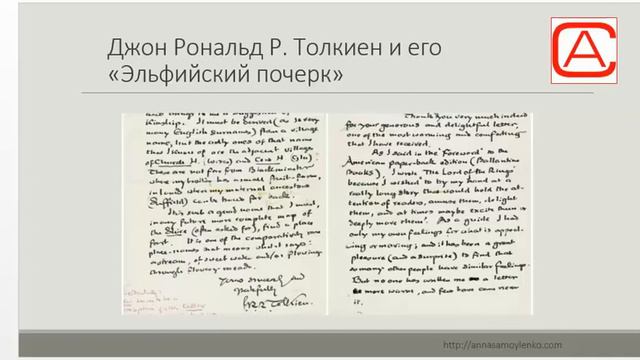 Джон Рональд Р. Толкиен и его
«Эльфийский почерк»
CA
kinship. It must be derived (as is very
many English surnames) from a village
name, but the only ones of that name
that I know of are the adjacent village
of Church H. (Worcs) and Cook H.
These are not far from
where my brother has a small fruit-farm,
in land where my maternal ancestors
(Suffield) can be traced far back.
It is such a good name that I must,
in any future more complete map of
the Shire (often asked for), find a place
for it. It is one of the comparatively rare
place-names that means what it says:
a stream, of sweet water and/or flowing
through flowery meads.
Yours sincerely and
gratefully
JRR Tolkien.
Thank you very much indeed
for your generous and delightful letter
one of the most warming and comforting
that I have received.
As I said in the 'Foreword' to the
American paper-back edition (Ballantine
Books), I wrote 'The Lord of the Rings'
because I wished to try my hand at a
really long story that would hold the at-
tention of readers, amuse them, delight
them, and at times maybe excite them or
deeply move them. As a guide I had
only my own feelings for what is appeal-
ing or moving; and it has been a great
pleasure (and a surprise) to find that
so many other people have similar feelings.
But no one has written me a letter
more warm, and few have come near
it.
http://annasamoylenko.com